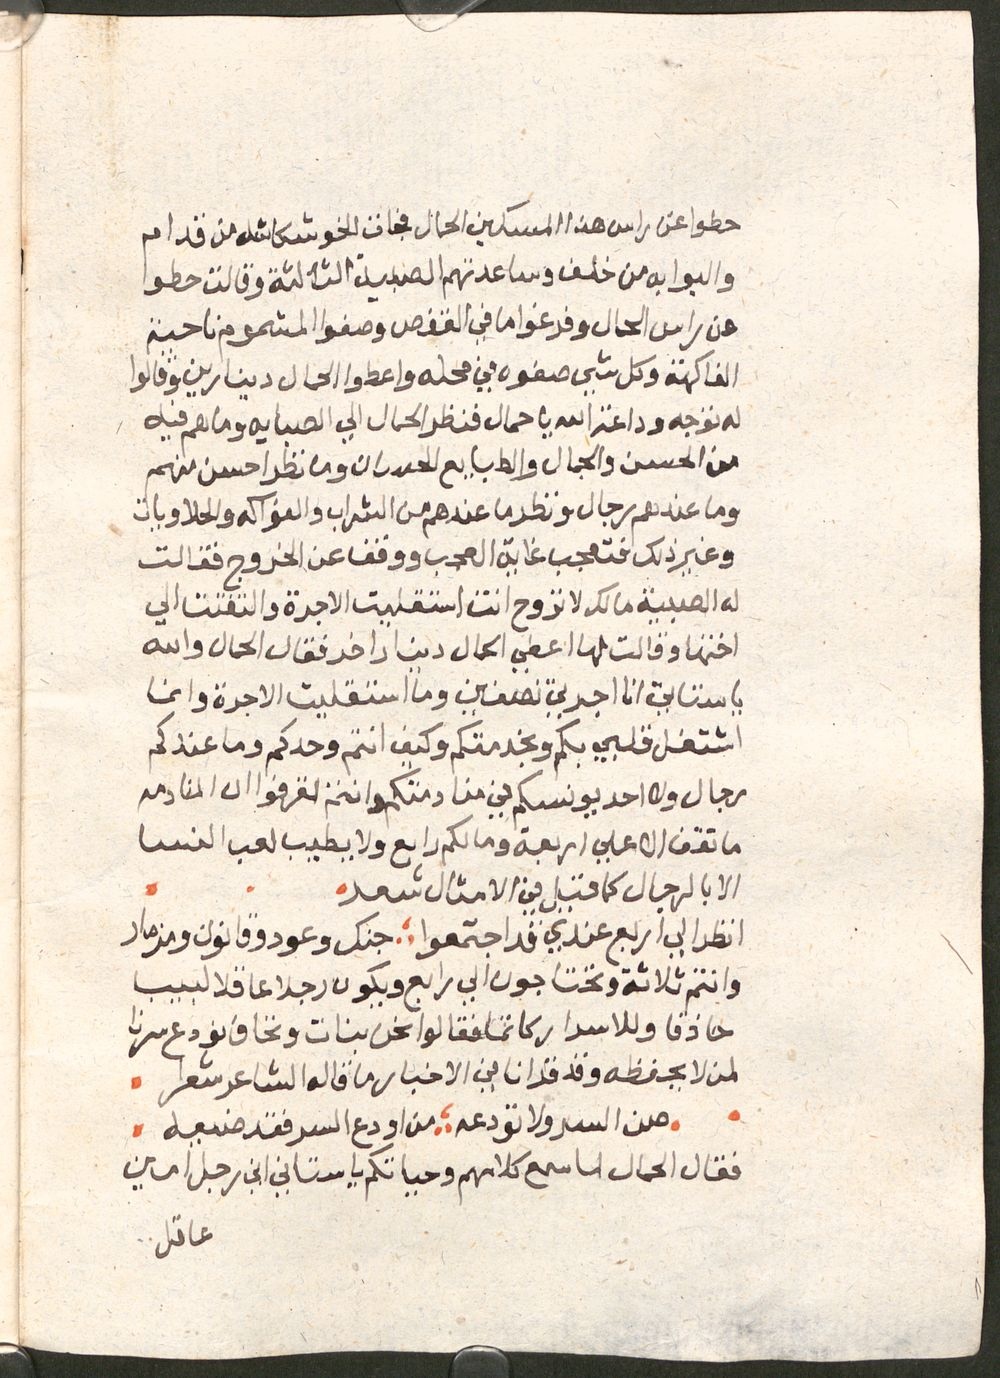 حطوا عن راس هذا المسكين الحمال فجات الخوشكاشه من قدام
والبوابه من خلف وساعدتهم الصبية الثالثة وقالت حطوا
عن راس الحمال وفرغوا ما في القفص وصفوا المشموم ناحية
الفاكهة وكل شي صفوه في محله واعطوا الحمال دينارين وقالوا
له توجه وداعة الله يا حمال فنظر الحمال الي الصبايه وما هم فيه
من الحسن والجمال والطبايع الحسان وما نظر احسن منهم
وما عندهم رجال ونظر ما عندهم من الشراب والفواكه والحلاويات
وغير ذلك فتعجب غاية العجب ووقف عن الخروج فقالت
له الصبية مالك لا تروح انت استقليت الاجرة والتفتت الي
اختها وقالت لها اعطي الحمال دينار اخر فقال الحمال والله
يا ستاتي انا اجرتي نصفين وما استقليت الاجرة وانما
اشتغل قلبي بكم وبخدمتكم وكيف انتم وحدكم وما عندكم
رجال ولا احد يونسكم في منادمتكم وانتم تعرفوا ان المنادمه
ما تقف الا علي اربعة وما لكم رابع ولا يطيب لعب النسا
الا بالرجال كما قيل في الامثال شعر
انظر الي اربع عندي قد اجتمعوا جنك وعود وقانون ومزمار
وانتم ثلاثة وتحتاجون الي رابع ويكون رجلا عاقلا لبيبا
حاذقا وللاسرار كاتما فقالوا نحن بنات ونخاف نودع سرنا
لمن لا يحفظه وقد قرانا في الاخبار ما قاله الشاعر شعر
صن السر ولا تودعه من اودع السر فقد ضيعه
فقال الحمال لما سمع كلامهم وحياتكم يا ستاتي اني رجل امين
عاقل